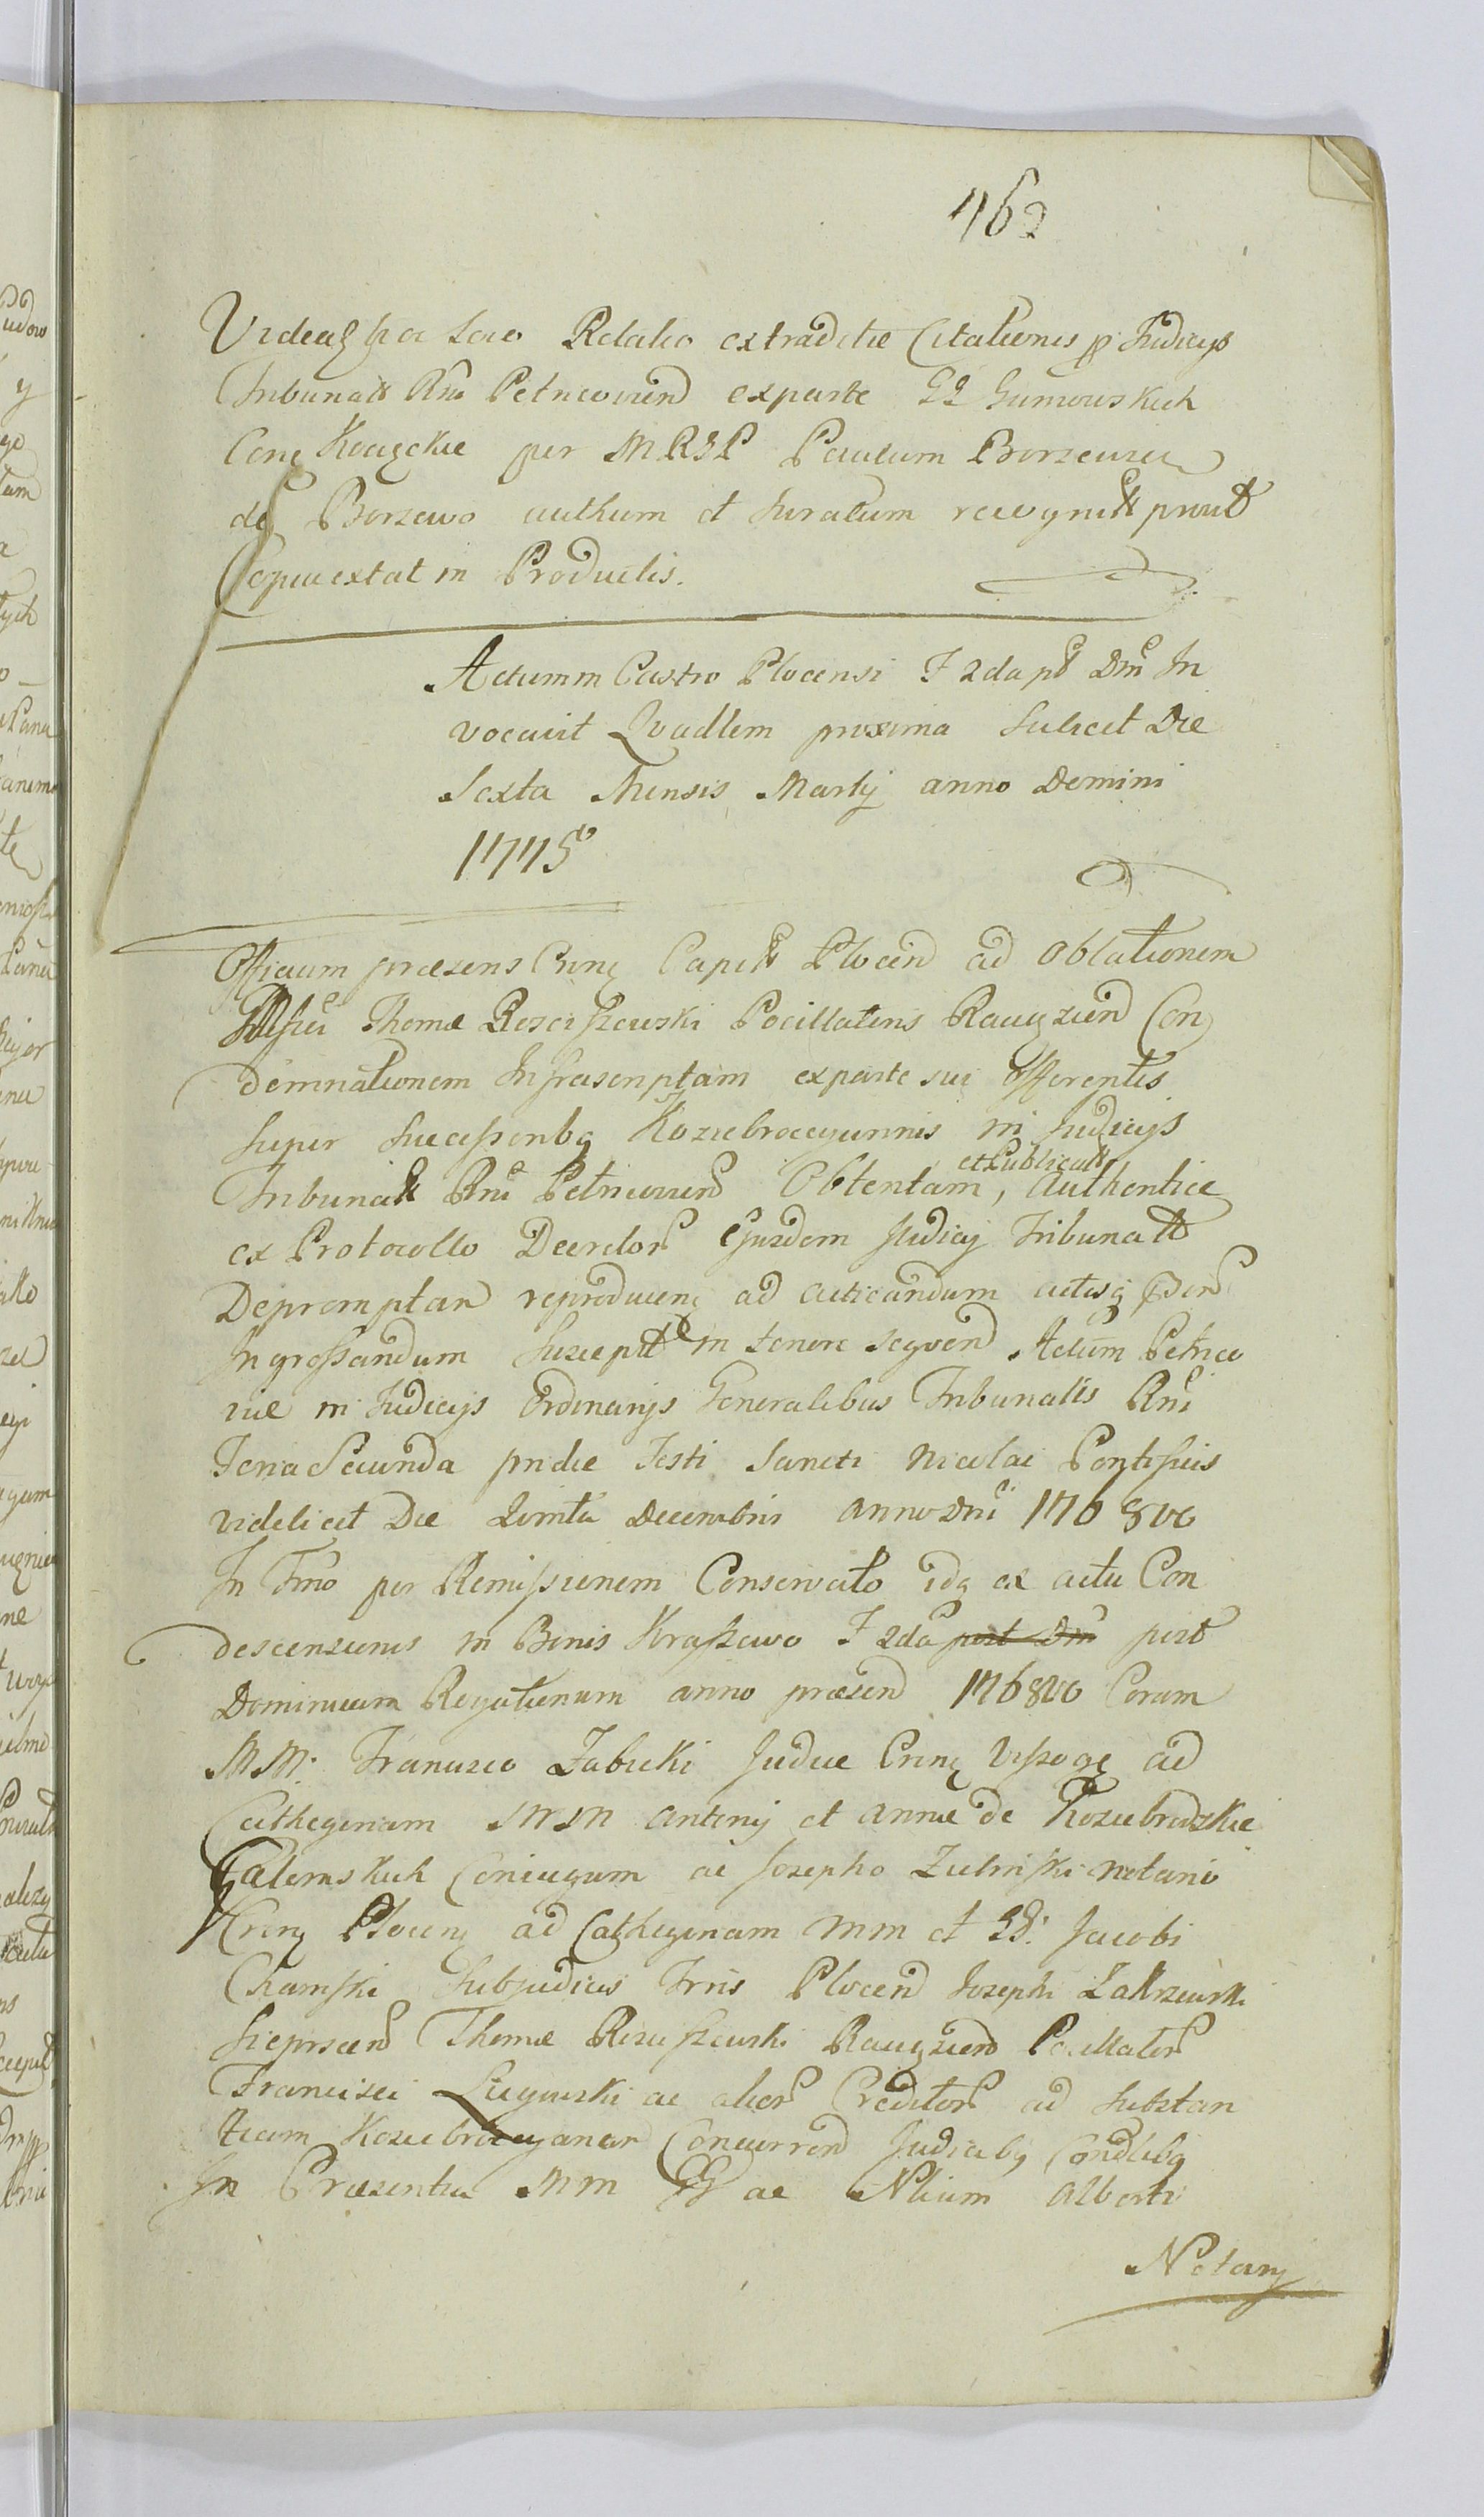 462
Videat hoc Loco Relatio extraditæ Citationis pp Judicijs
Tribunalt Rni Petricovien exparte GG Gumowskich
Cong per MRSP Paulum Borzewski
de Borzewo authum et Juratum recognit prout
Copia extat in Productis.
Actum in Castro Plocensi F 2da pt Dm In
vocavit Qvadlem proxima scilicet Die
Sexta Mensis Martij anno Domini
1775to
Officium præsens Crine Capitt Plocen ad oblationem
Thomæ Rosciszewski Pocillatoris Raugzien Con
demnationem Infrascriptam exparte sui offerentis
super Successoribq Koziebroccyannis in Judicijs
et Publicatt
Tribunalt Rni Petricovien Obtentam, Authentice
ex Protocollo Decretor Ejusdem Judicij Tribunalt
Depromptam reproducen ad acticandum actisq
Ingrossandum Suscepit in tenore seqven Actum Petrico
viæ in Judicijs Ordinarijs Generalibus Tribunalis Rni
Feria Secunda pridie Festi Sancti Nicolai Pontificis
videlicet Die Qvinta Decembris anno Dni 1768vo
In Tmo per Remissionem Conservato idq ex actu Con
descensionis in Bonis Kraszewo F 2da post Dm post
Dominicam Regationum anno præsen 1768vo Coram
MM. Francisco Zabicki Judice Crine Vissoge ad
Cathegoriam MM Antonij et Annæ de Koziebrodzkie
Galemskich Coniugum ac Josepho Zielinski Notario
Crine Plocen ad Cathegoriam MM et GG. Jacobi
Chamski Subjudicis Trris Plocen Josephi Zakrzewski
Sieprscen Thomæ Rosciszewski Raugzien Pocillator
Francisci Ligowski ac alior Creditor ad Substan
tiam Koziebroccyanam Concurren Judicibq Condlibq
In Præsentia MM GG ac Nlium Alberti
Notarij